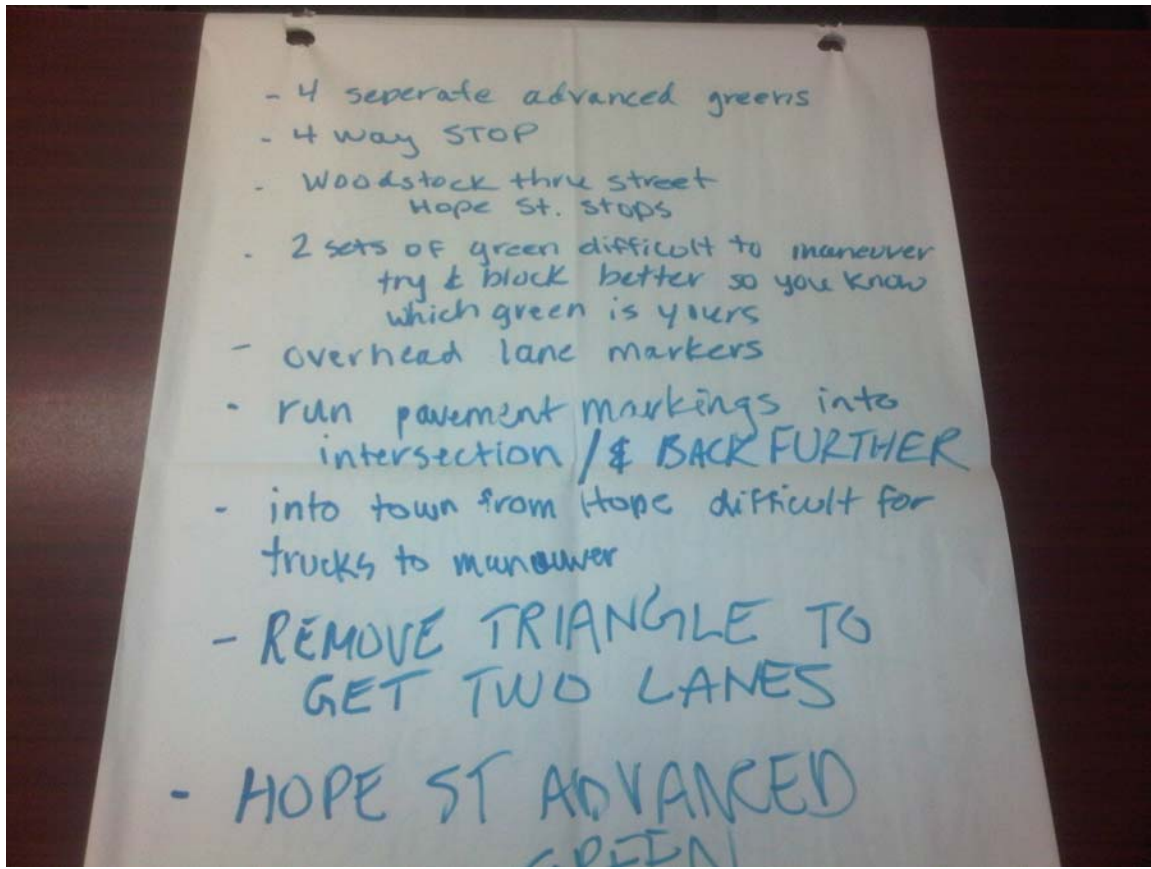 - 4 seperate advanced greens
- 4 way STOP
- Woodstock thru street
Hope St. stops
- 2 sets of green difficult to maneuver
try & block better so you know
which green is yours
- overhead lane markers
- run pavement markings into
intersection / & BACK FURTHER
- into town from Hope difficult for
trucks to manouver
- REMOVE TRIANGLE TO
GET TWO LANES
- HOPE ST ADVANCED
GREEN